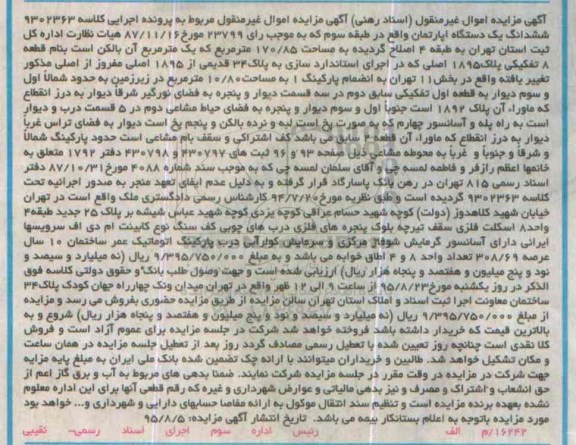 آگهی مزایده اموال غیرمنقول (اسناد رهنی) آگهی مزایده اموال غیرمنقول مربوط به پرونده اجرایی کلاسه ۹۳۰۲۳۶۳
ششدانگ یک دستگاه آپارتمان واقع در طبقه سوم که به موجب رای ۲۳۷۹۹ مورخ ۸۷/۱۱/۱۶ هیات نظارت اداره کل
ثبت استان تهران به طبقه ۴ اصلاح گردیده به مساحت ۱۷۰/۸۵ مترمربع که یک مترمربع آن بالکن است بنام قطعه
۸ تفکیکی پلاک ۱۸۹۵ اصلی که در اجرای استاندارد سازی به پلاک ۳۴ قدیمی از ۱۸۹۵ اصلی مفروز از اصلی مذکور
تغییر یافته واقع در بخش ۱۱ تهران به انضمام پارکینگ ۱ به مساحت ۱۰/۸۰ مترمربع در زیرزمین به حدود شمالا اول
و سوم دیوار به قطعه اول تفکیکی سابق دوم در سه قسمت دیوار و پنجره به فضای نورگیر شرقا دیوار به درز انقطاع
که ماوراء آن پلاک ۱۸۹۲ است جنوبا اول و سوم دیوار و پنجره به فضای حیاط مشاعی دوم در ۵ قسمت درب و دیوار
است به راه پله و آسانسور چهارم که به صورت پخ است لبه و نرده بالکن و پنجم پخ است دیوار به فضای تراس غربا
دیوار به درز انقطاع که ماوراء آن قطعه ۲ سابق می باشد کف اشتراکی و سقف بام مشاعی است حدود پارکینگ شمالا
و شرقا و جنوبا و غربا به محوطه مشاعی ذیل صفحه ۹۳ و ۹۶ ثبت های ۴۳۰۷۹۷ و ۴۳۰۷۹۸ دفتر ۱۷۹۲ متعلق به
خانمها اعظم رازفر و فاطمه لمسه چی و آقای سلمان لمسه چی که به موجب سند شماره ۴۰۸۸ مورخ ۸۷/۱۰/۳۱ دفتر
اسناد رسمی ۸۱۵ تهران در رهن بانک پاسارگاد قرار گرفته و به دلیل عدم ایفای تعهد منجر به صدور اجرائیه تحت
کلاسه ۹۳۰۲۳۶۳ گردیده است و طبق نظریه مورخ ۹۴/۷/۲۰ کارشناس رسمی دادگستری ملک واقع است در تهران
خیابان شهید کلاهدوز (دولت) کوچه شهید حسام عراقی کوچه یزدی کوچه شهید عباس شیشه بر پلاک ۲۵ جدید طبقه ۴
واحد ۸ اسکلت فلزی سقف تیرچه بلوک پنجره های فلزی درب های چوبی کف سنگ نوع کابینت ام دی اف سرویسها
ایرانی دارای آسانسور گرمایش شوفاژ مرکزی و سرمایش کولرآبی درب پارکینگ اتوماتیک عمر ساختمان ۱۰ سال
عرصه ۳۰۸/۶۹ تعداد واحد ۸ و ۴ اطاق خوابه می باشد و به مبلغ ۹/۳۹۵/۷۵۰/۰۰۰ ریال (نه میلیارد و سیصد و
نود و پنج میلیون و هفتصد و پنجاه هزار ریال) ارزیابی شده است و جهت وصول طلب بانک و حقوق دولتی کلاسه فوق
الذکر در روز یکشنبه مورخ ۹۵/۸/۲۳ از ساعت ۹ الی ۱۲ ظهر واقع در تهران میدان ونک چهارراه جهان کودک پلاک ۳۴
ساختمان معاونت اجرا ثبت اسناد و املاک استان تهران سالن مزایده از طریق مزایده حضوری بفروش می رسد و مزایده
از مبلغ ۹/۳۹۵/۷۵۰/۰۰۰ ریال (نه میلیارد و سیصد و نود و پنج میلیون و هفتصد و پنجاه هزار ریال) شروع و به
بالاترین قیمت که خریدار داشته باشد فروخته خواهد شد شرکت در جلسه مزایده برای عموم آزاد است و فروش
کلا نقدی است چنانچه روز تعیین شده با تعطیل رسمی مصادف گردد روز بعد از تعطیل جلسه مزایده در همان ساعت
و مکان تشکیل خواهد شد. طالبین و خریداران میتوانند با ارائه چک تضمین شده بانک ملی ایران به مبلغ پایه مزایه
جهت شرکت در مزایده در وقت مقرر در جلسه مزایده شرکت نمایند. ضمنا بدهی های مربوط به آب و برق گاز اعم از
حق انشعاب و اشتراک و مصرف و نیز بدهی مالیاتی و عوارض شهرداری و غیره که رقم قطعی آنها برای این اداره معلوم
نشده بعهده برنده مزایده است و تنظیم سند انتقال موکول به ارائه مفاصا حسابهای دارایی و شهرداری و... خواهد بود
مورد مزایده باتوجه به اعلام بستانکار بیمه می باشد. تاریخ انتشار آگهی مزایده: ۹۵/۸/۵
۱۶۲۴۲/م الف رئیس اداره سوم اجرای اسناد رسمی- نقیبی